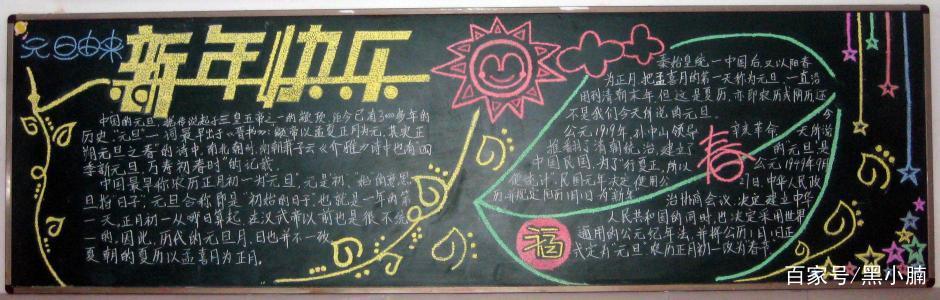 元旦由来
新年快乐
中国的元旦,据传说起于三皇五帝之一的颛顼,距今已有3000多年的
历史。"元旦"一词最早出于《晋书》:"颛帝以孟夏正月为元,其实正
朔元旦之春"的诗中。南北朝时,南朝萧子云《介雅》诗中也有"四
季新元旦,万寿初春时"的记载。
中国最早称农历正月初一为"元旦",元是"初"、"始"的意思
旦指"日子",元旦合称即是"初始的日子",也就是一年的第
一天。正月初一从哪日算起,在汉武帝以前也是很不统
一的,因此,历代的元旦月、日也并不一致
夏朝的夏历以孟喜月为正月。
秦始皇统一中国后,又以阳春
为正月,把孟喜月的第一天称为元旦,一直沿
用到清朝末年。但这是夏历,亦即农历或阴历,还
不是我们今天所说的元旦。
公元1919年,孙中山领导
辛亥革命
推翻了清朝统治,建立了
中国民国。为了"行夏正,所以
便统计",民国元年决定使用公
春
今
天所说
的元旦"是
公元1949年9月
27日,中华人民政
治协商会议,决定建立中华
人民共和国的同时,也决定采用世界
通用的公元纪年法,并将公历1月1日正
式定为"元旦",农历正月初一改为春节
福
百家号/黑小腩